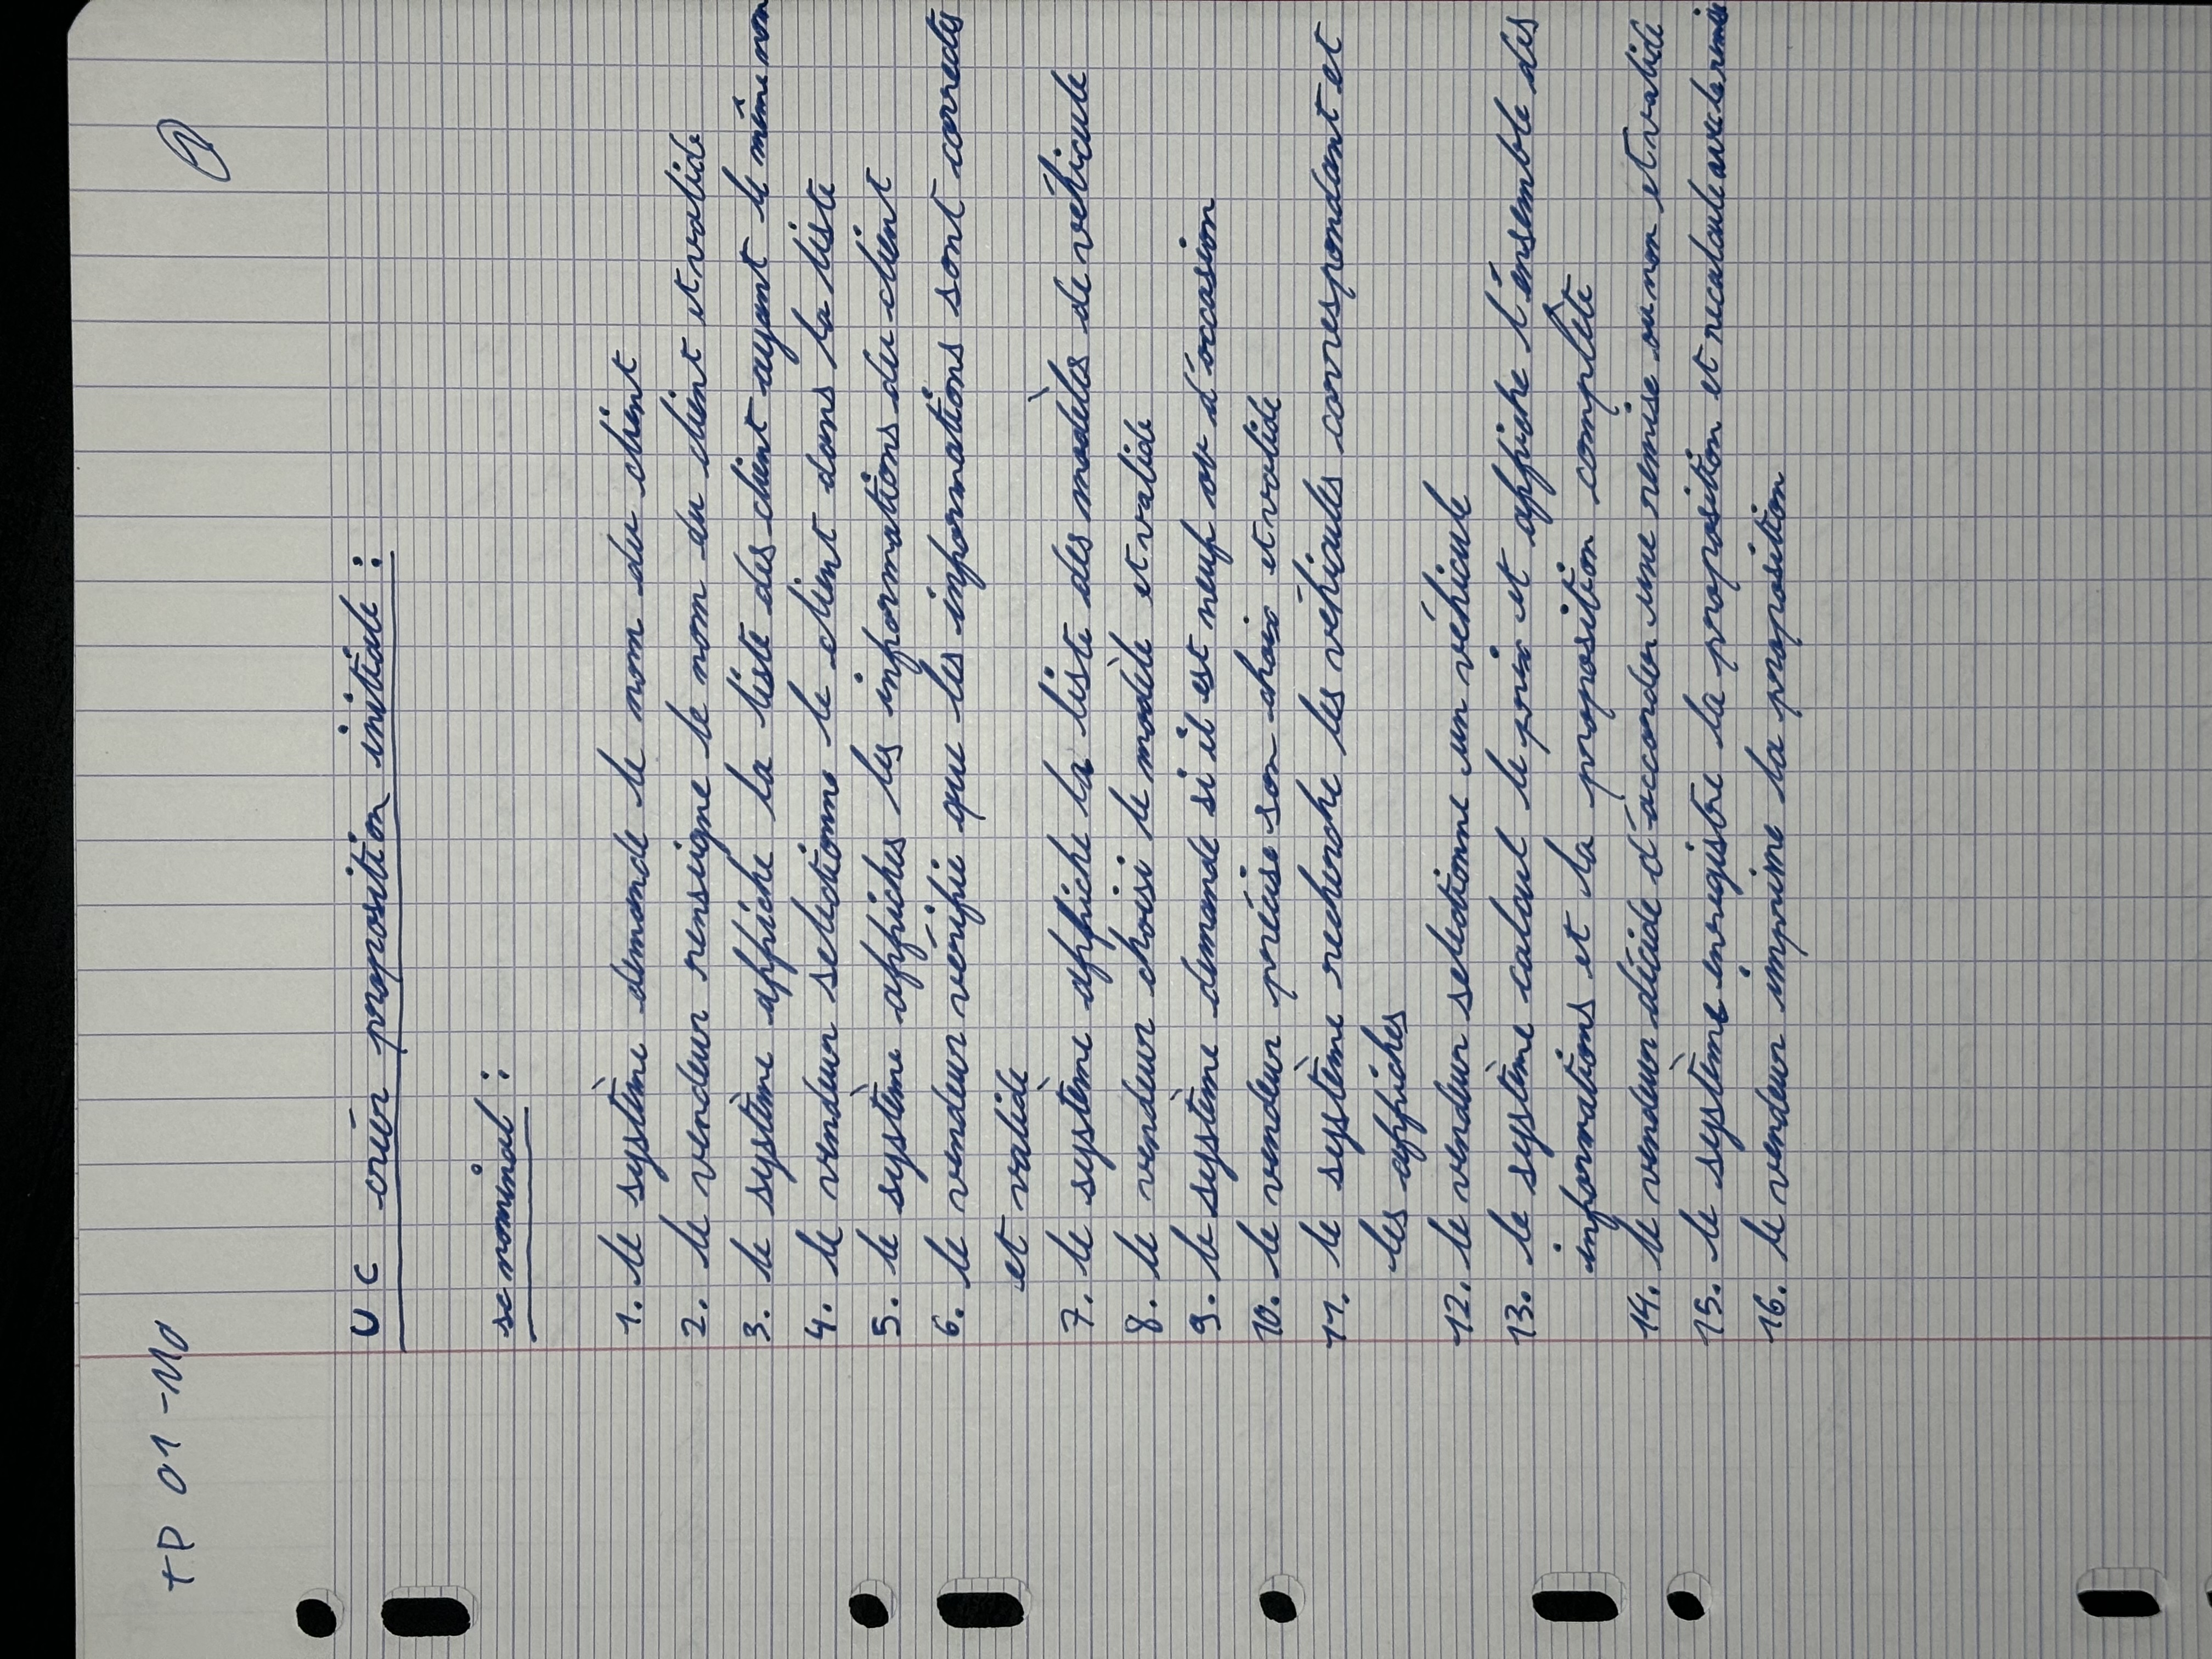 TP 01 - M0
1
UC créer proposition initiale :
sc nominal :
1. le système demande le nom du client
2. le vendeur renseigne le nom du client et valide
3. le système affiche la liste des client ayant le même nom
4. le vendeur selectionne le client dans la liste
5. le système affiches les informations du client
6. le vendeur vérifie que les informations sont correctes
et valide
7. le système affiche la liste des modèles de véhicule
8. le vendeur choisi le modèle et valide
9. le système demande si il est neuf ou d'occasion
10. le vendeur précise son choix et valide
11. le système recherche les véhicules correspondant et
les affiches
12. le vendeur selectionne un véhicule
13. le système calcul le prix et affiche l'ensemble des
informations et la proposition complète
14. le vendeur décide d'accorder une remise ou non et valide
15. le système enregistre la proposition et recalcule avec la remise
16. le vendeur imprime la proposition